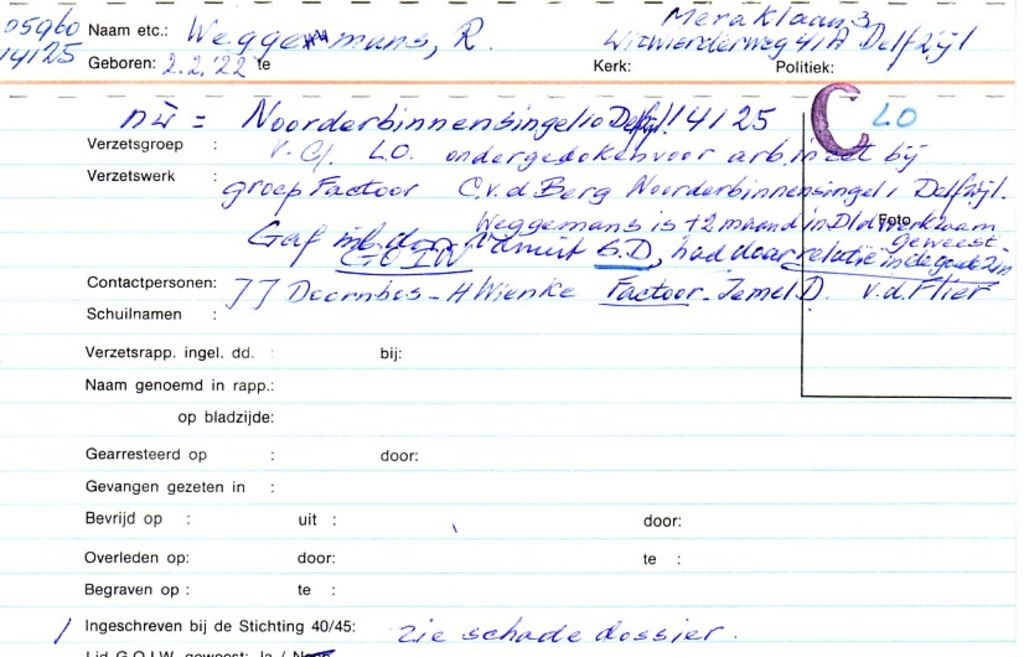 05960 Naam etc.: Weggemans, R. Meraklaan 3
14125 Witwierderweg 41A Delfzijl
Geboren: 2.2.'22 te Kerk: Politiek:
nu = Noorderbinnensingel 10 Delfzijl! 14125 C LO
Verzetsgroep : LO. ondergedoken voor arb. inzet bij
Verzetswerk : groep Factoor C.v.d.Berg Noorderbinnensingel, Delfzijl.
Weggemans is ±2 maand in Dld werkzaam Foto geweest
Gaf vanuit S.D, had daar relatie in de goede zin
GOIW
Contactpersonen: JJ Doornbos - H Wienke Factoor - Jemel D. v.d. Flier
Schuilnamen :
Verzetsrapp. ingel. dd. : bij:
Naam genoemd in rapp.:
op bladzijde:
Gearresteerd op : door:
Gevangen gezeten in :
Bevrijd op : uit : door:
Overleden op: door: te :
Begraven op : te :
/ Ingeschreven bij de Stichting 40/45: zie schade dossier.
Lid G.O.I.W. geweest: Ja / Neen